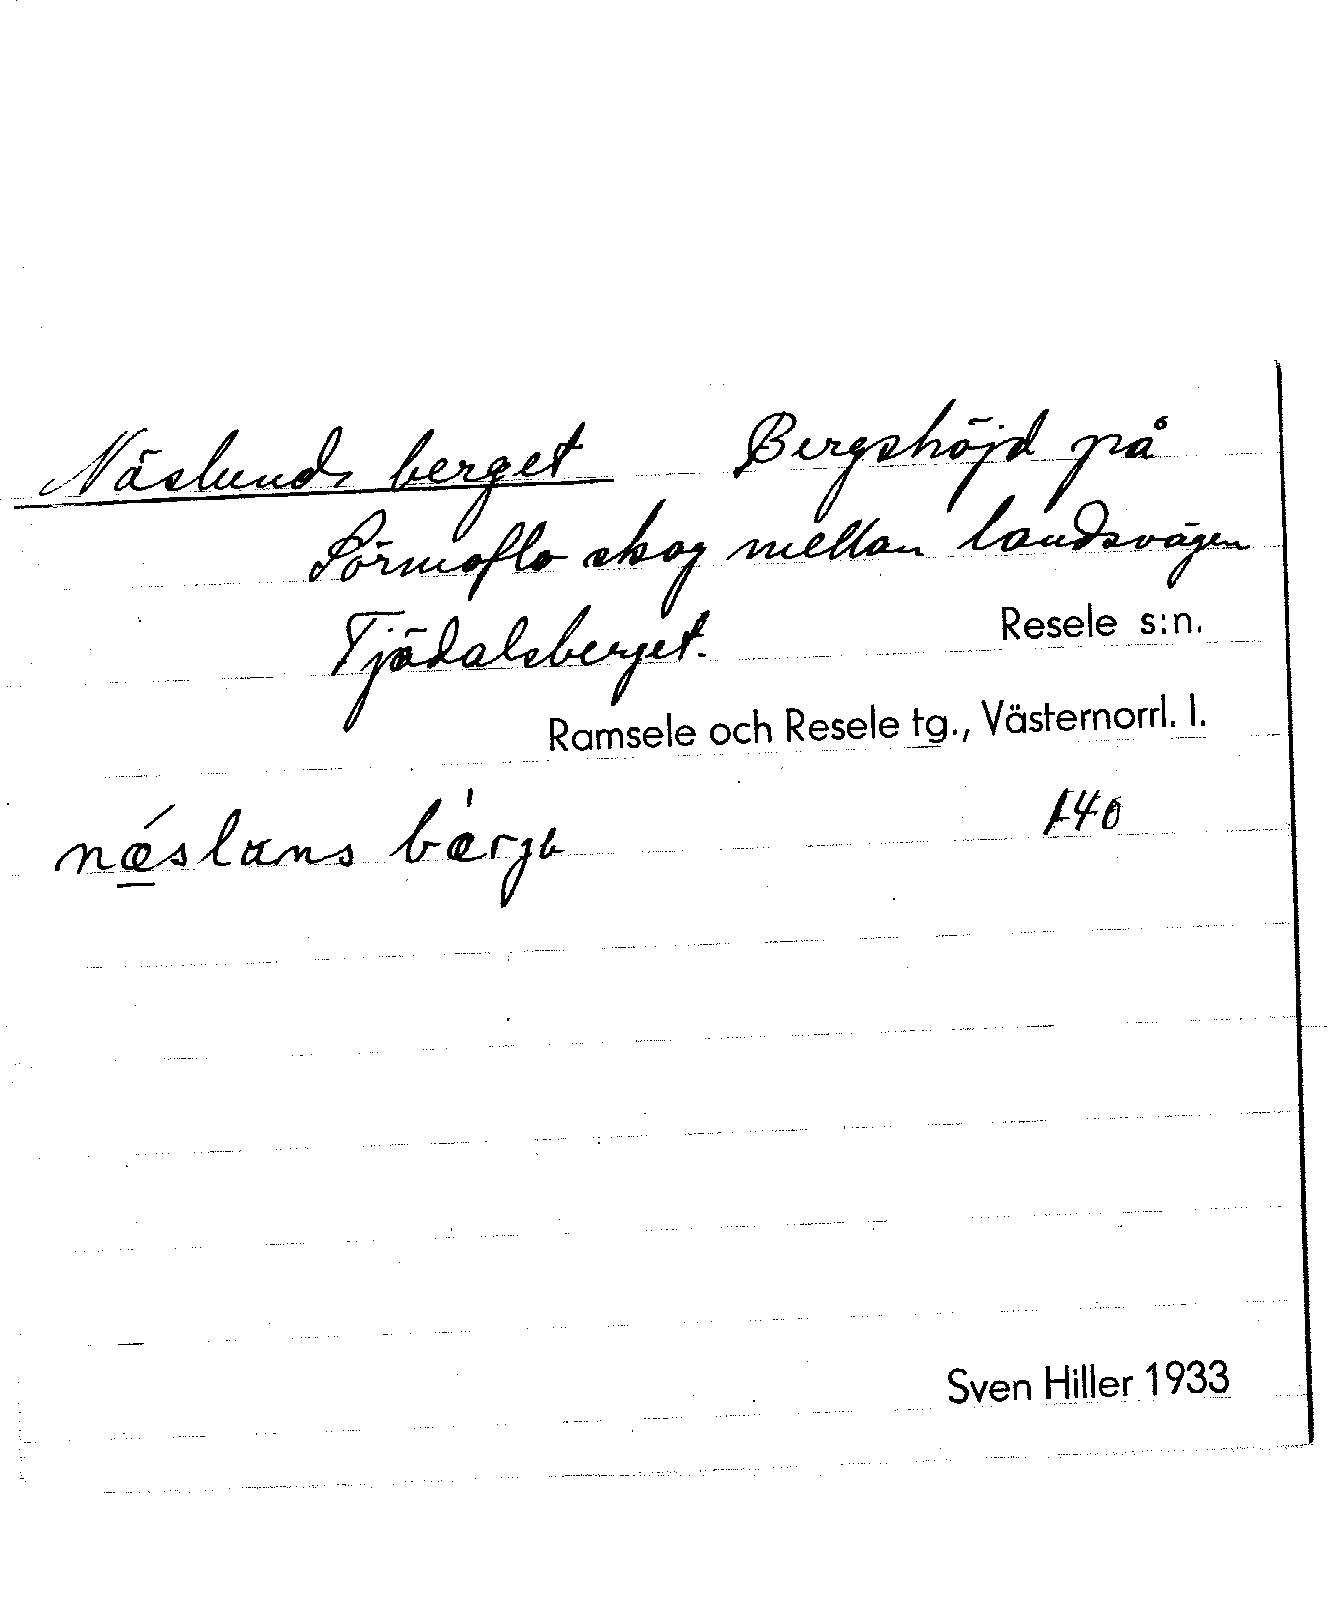 Näslunds berget Bergshöjd på
Sörmoflo skog mellan landsvägen
Tjädalsberget. Resele s:n.
Ramsele och Resele tg., Västernorrl. l.
140
Sven Hiller 1933